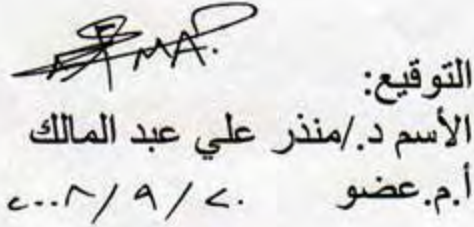 التوقيع:
الأسم د./منذر علي عبد المالك
أ.م.عضو
٢٠٠٨/٩/٢٠